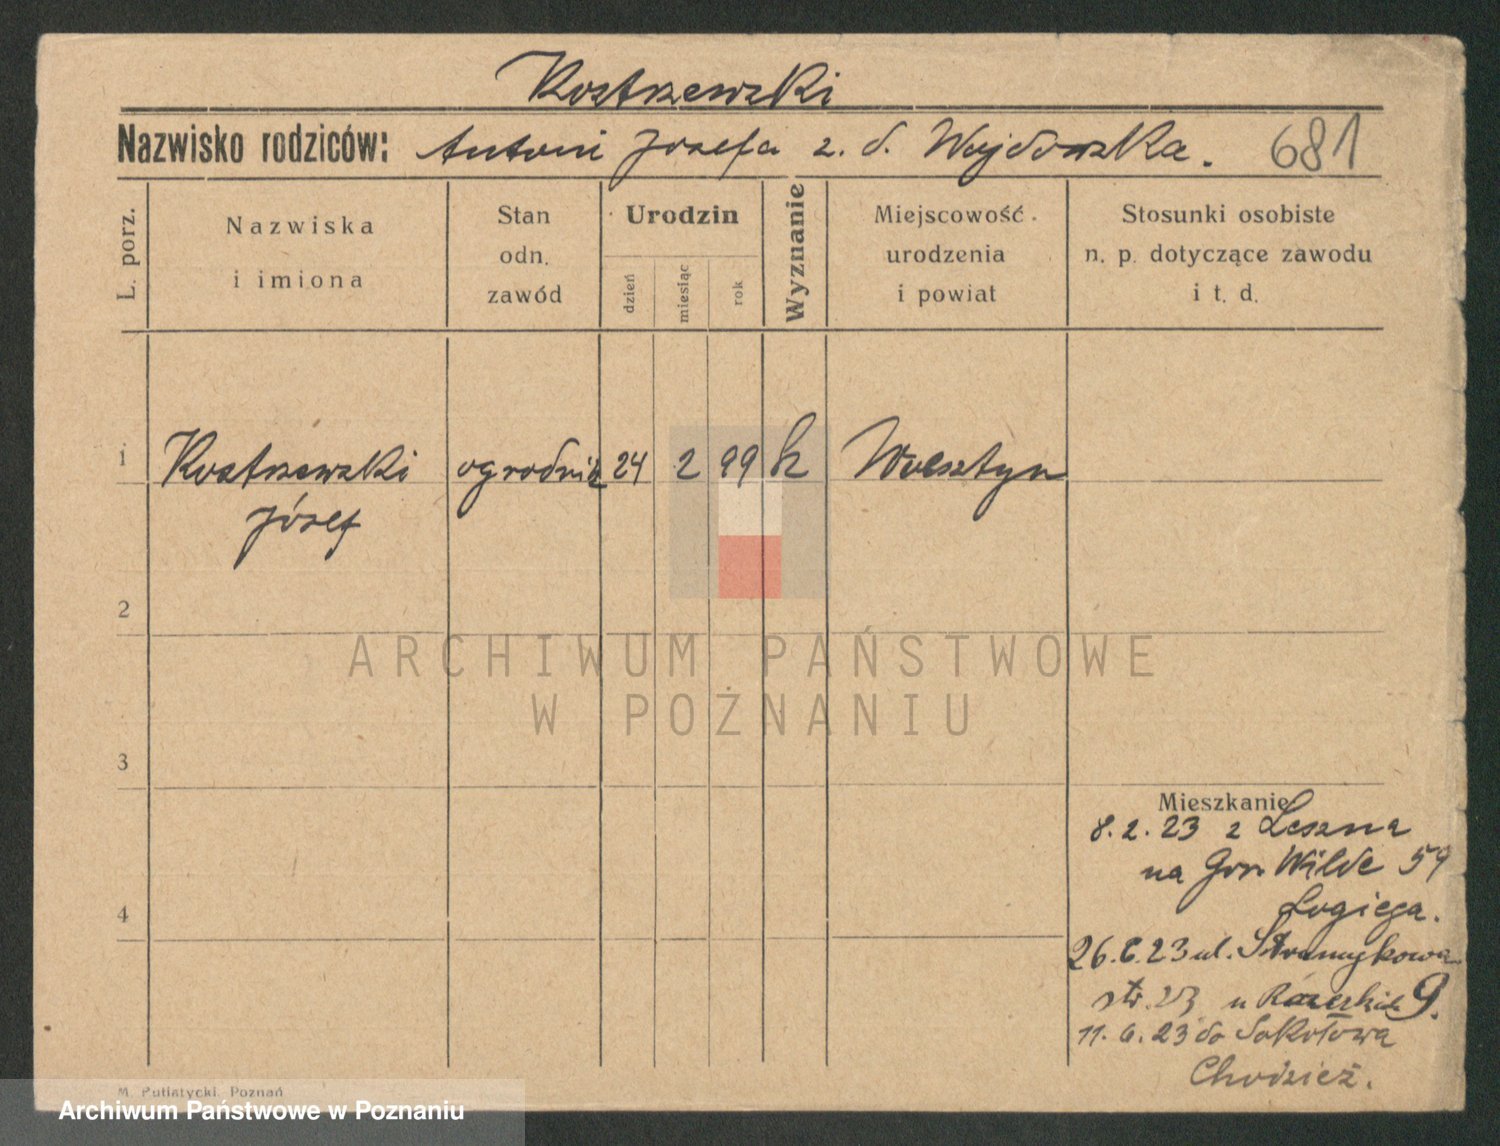 Kostrzewski
Nazwisko rodziców: Antoni Józefa z. d. Wojdowska. 681
L. porz.
Nazwiska
i imiona
Stan
odn.
zawód
Urodzin
dzień
miesiąc
rok
Wyznanie
Miejscowość
urodzenia
i powiat
Stosunki osobiste
n. p. dotyczące zawodu
i t. d.
1 Kostrzewski ogrodnik 24 2 99 k Wolsztyn
Józef
2
ARCHIWUM PAŃSTWOWE
W POZNANIU
3
Mieszkanie
8.2.23 z Leszna
na Gór. Wilde 59
26.6.23 ul. Strumykowa
str. 23 u 9.
11.6.23 do Sokołowa
Chodzież.
4
M. Putiatycki, Poznań
Archiwum Państwowe w Poznaniu